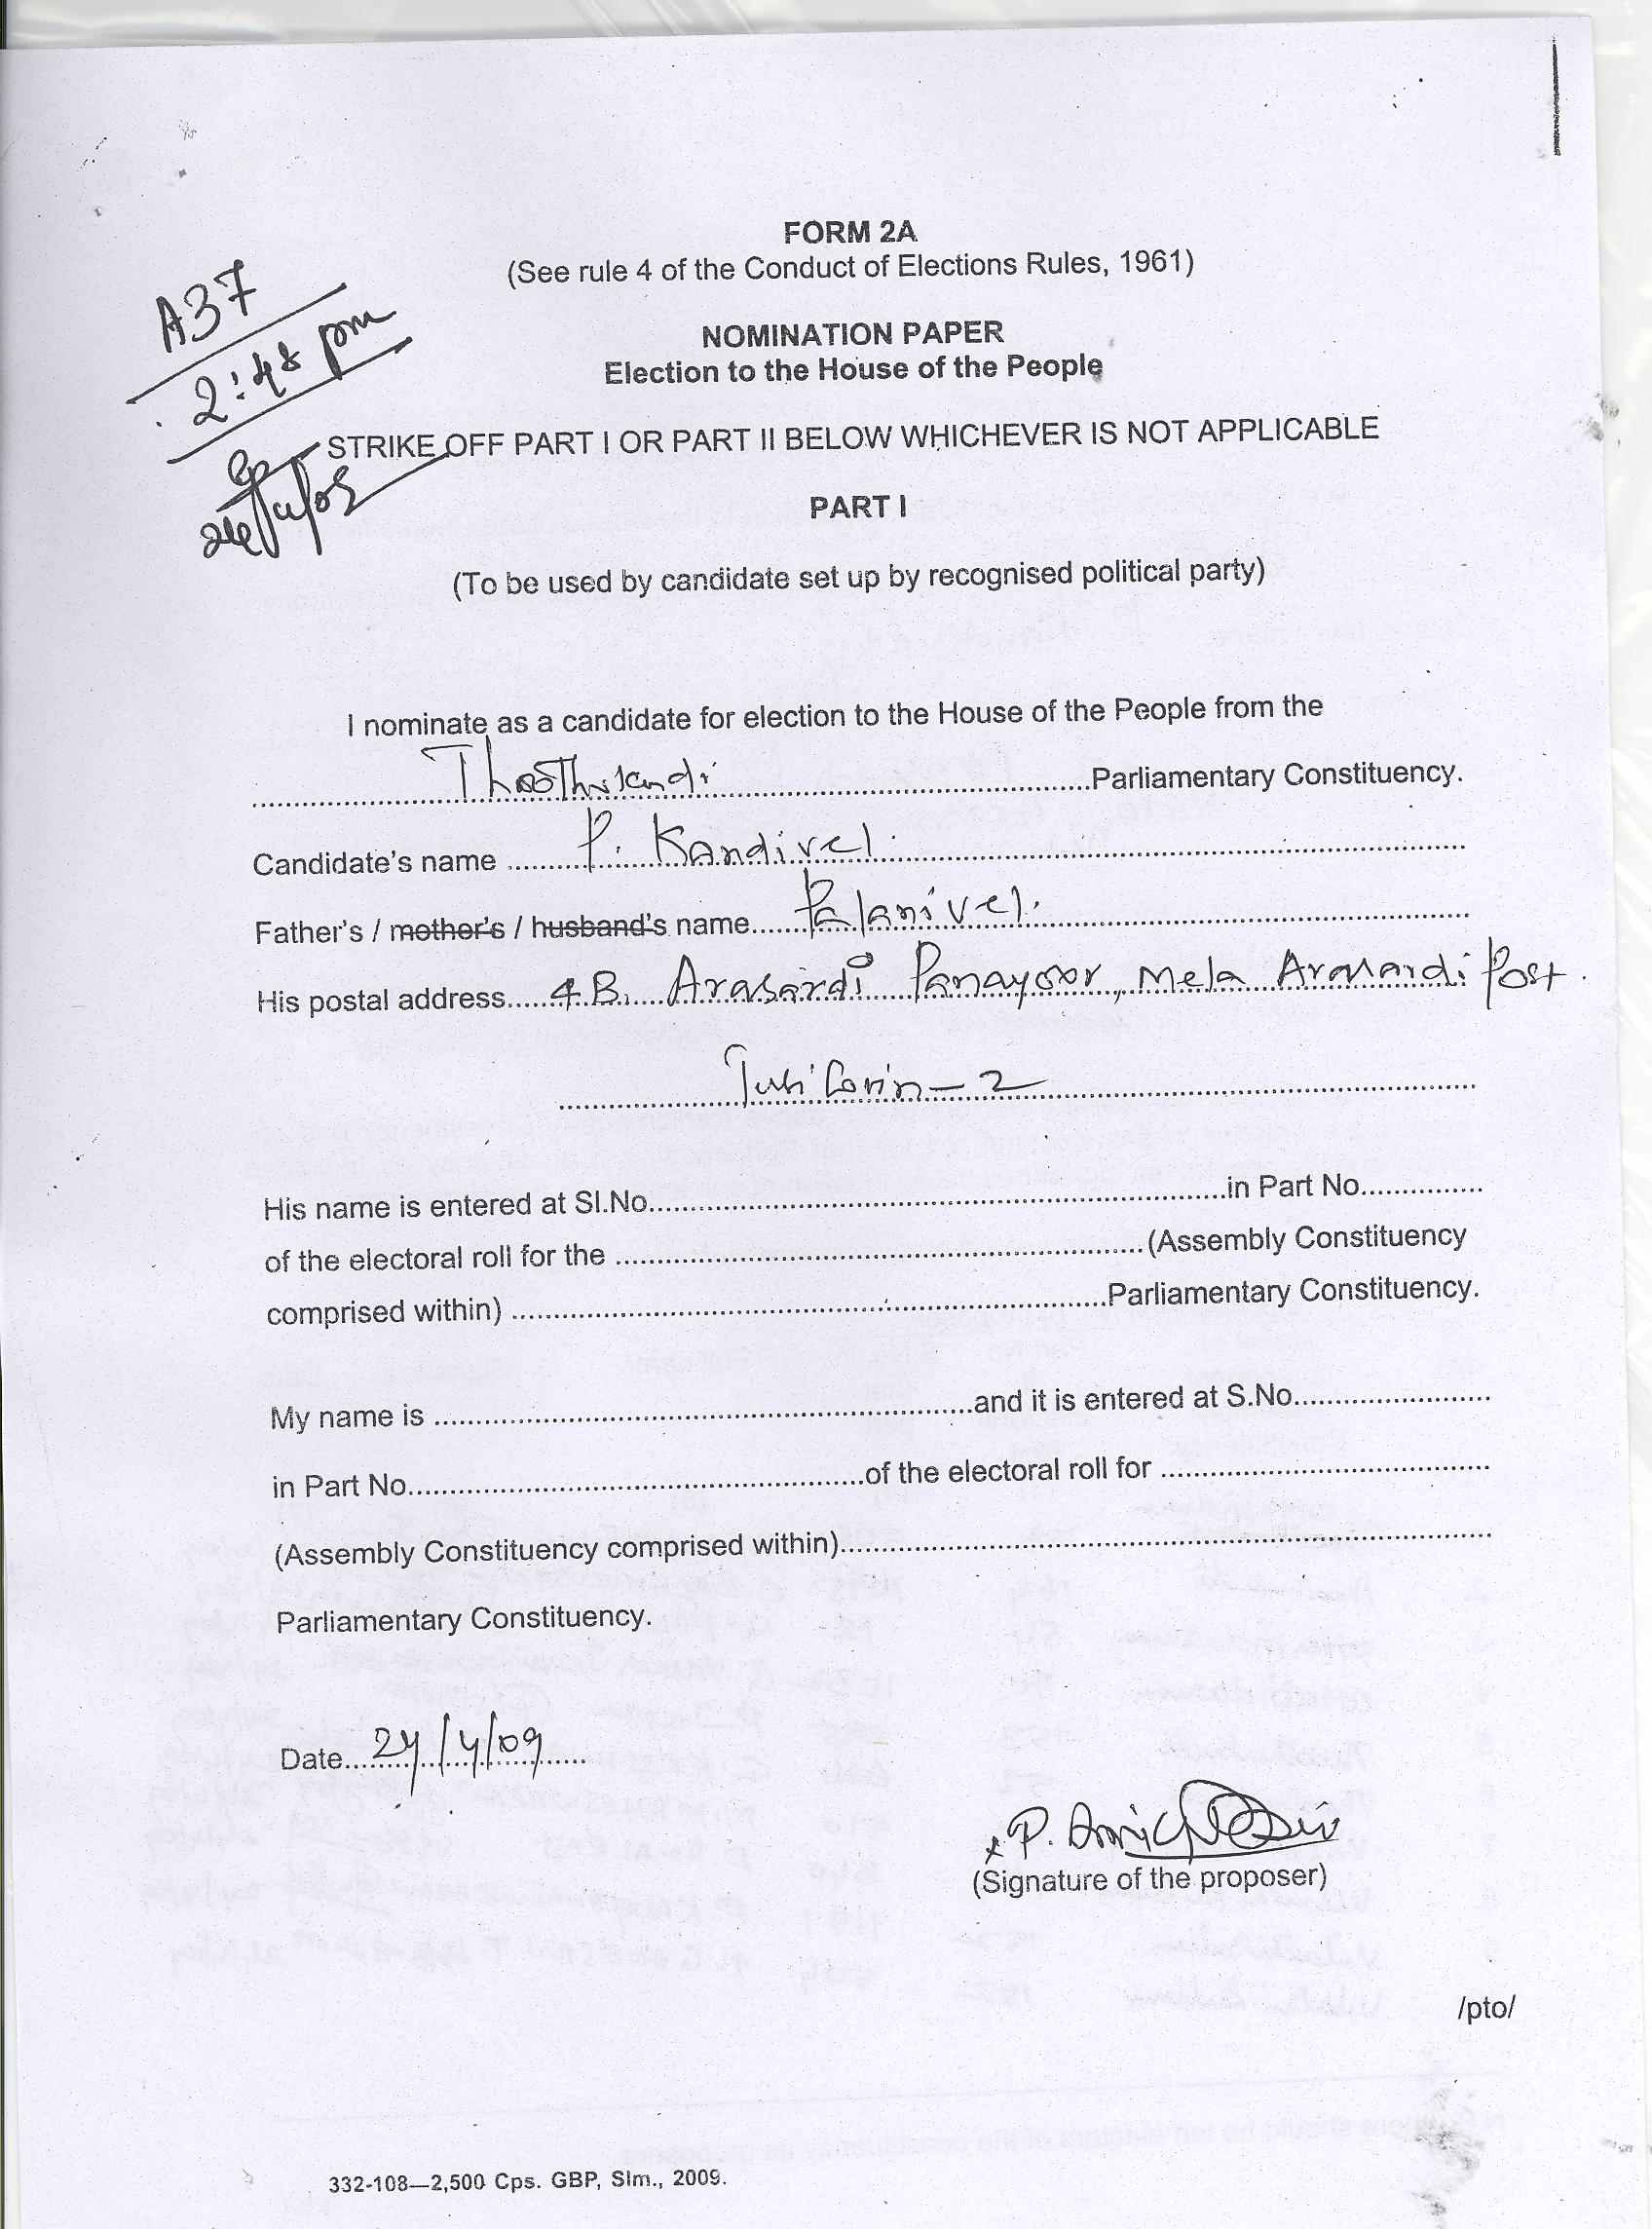 FORM 2A
(See rule 4 of the Conduct of Elections Rules, 1961)
A37
2:48 pm
NOMINATION PAPER
Election to the House of the People
STRIKE OFF PART I OR PART II BELOW WHICHEVER IS NOT APPLICABLE
PART I
(To be used by candidate set up by recognised political party)
I nominate as a candidate for election to the House of the People from the
Thoothukandi Parliamentary Constituency.
Candidate's name P. Kandivel.
Father's / mother's / husband's name Palanivel.
His postal address 4 B, Arasardi Panayoor, Mela Arasardi Post.
Tuticorin - 2
His name is entered at Sl.No. in Part No.
of the electoral roll for the (Assembly Constituency
comprised within) Parliamentary Constituency.
My name is and it is entered at S.No.
in Part No. of the electoral roll for
(Assembly Constituency comprised within)
Parliamentary Constituency.
Date 24/4/09
(Signature of the proposer)
/pto/
332-108—2,500 Cps. GBP, Slm., 2009.